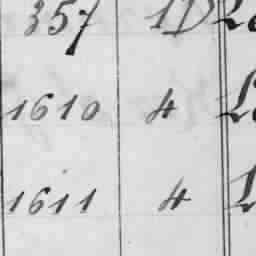 357 1D
1610 4
1611 4